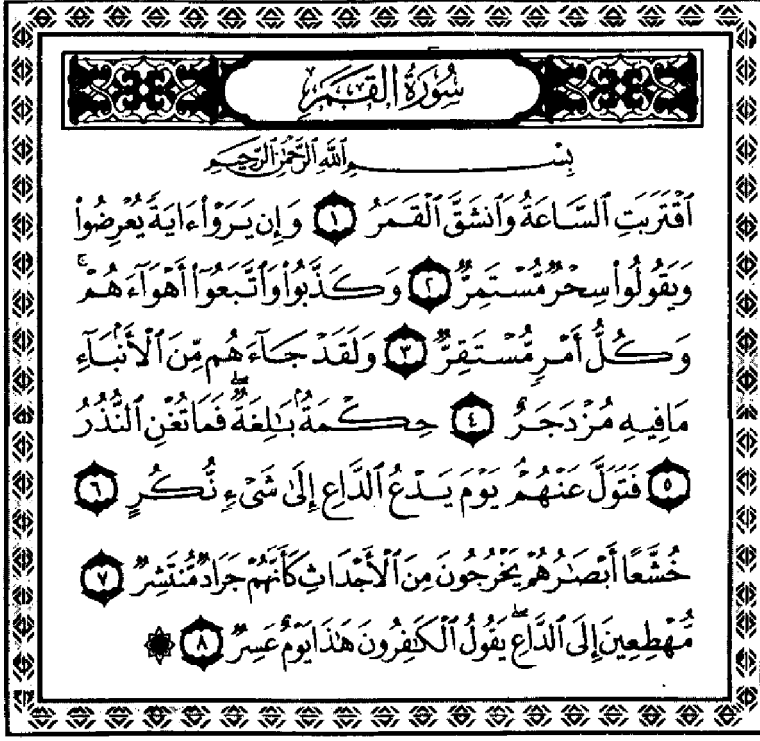 سُورَةُ القَمَرِ
بِسْمِ ٱللَّهِ ٱلرَّحْمَٰنِ ٱلرَّحِيمِ
ٱقْتَرَبَتِ ٱلسَّاعَةُ وَٱنشَقَّ ٱلْقَمَرُ ١ وَإِن يَرَوْا۟ ءَايَةً يُعْرِضُوا۟
وَيَقُولُوا۟ سِحْرٌ مُّسْتَمِرٌّ ٢ وَكَذَّبُوا۟ وَٱتَّبَعُوٓا۟ أَهْوَآءَهُمْ ۚ
وَكُلُّ أَمْرٍ مُّسْتَقِرٌّ ٣ وَلَقَدْ جَآءَهُم مِّنَ ٱلْأَنۢبَآءِ
مَا فِيهِ مُزْدَجَرٌ ٤ حِكْمَةٌۢ بَٰلِغَةٌ ۖ فَمَا تُغْنِ ٱلنُّذُرُ
٥ فَتَوَلَّ عَنْهُمْ ۘ يَوْمَ يَدْعُ ٱلدَّاعِ إِلَىٰ شَىْءٍ نُّكُرٍ ٦
خُشَّعًا أَبْصَٰرُهُمْ يَخْرُجُونَ مِنَ ٱلْأَجْدَاثِ كَأَنَّهُمْ جَرَادٌ مُّنتَشِرٌ ٧
مُّهْطِعِينَ إِلَى ٱلدَّاعِ ۖ يَقُولُ ٱلْكَٰفِرُونَ هَٰذَا يَوْمٌ عَسِرٌ ٨